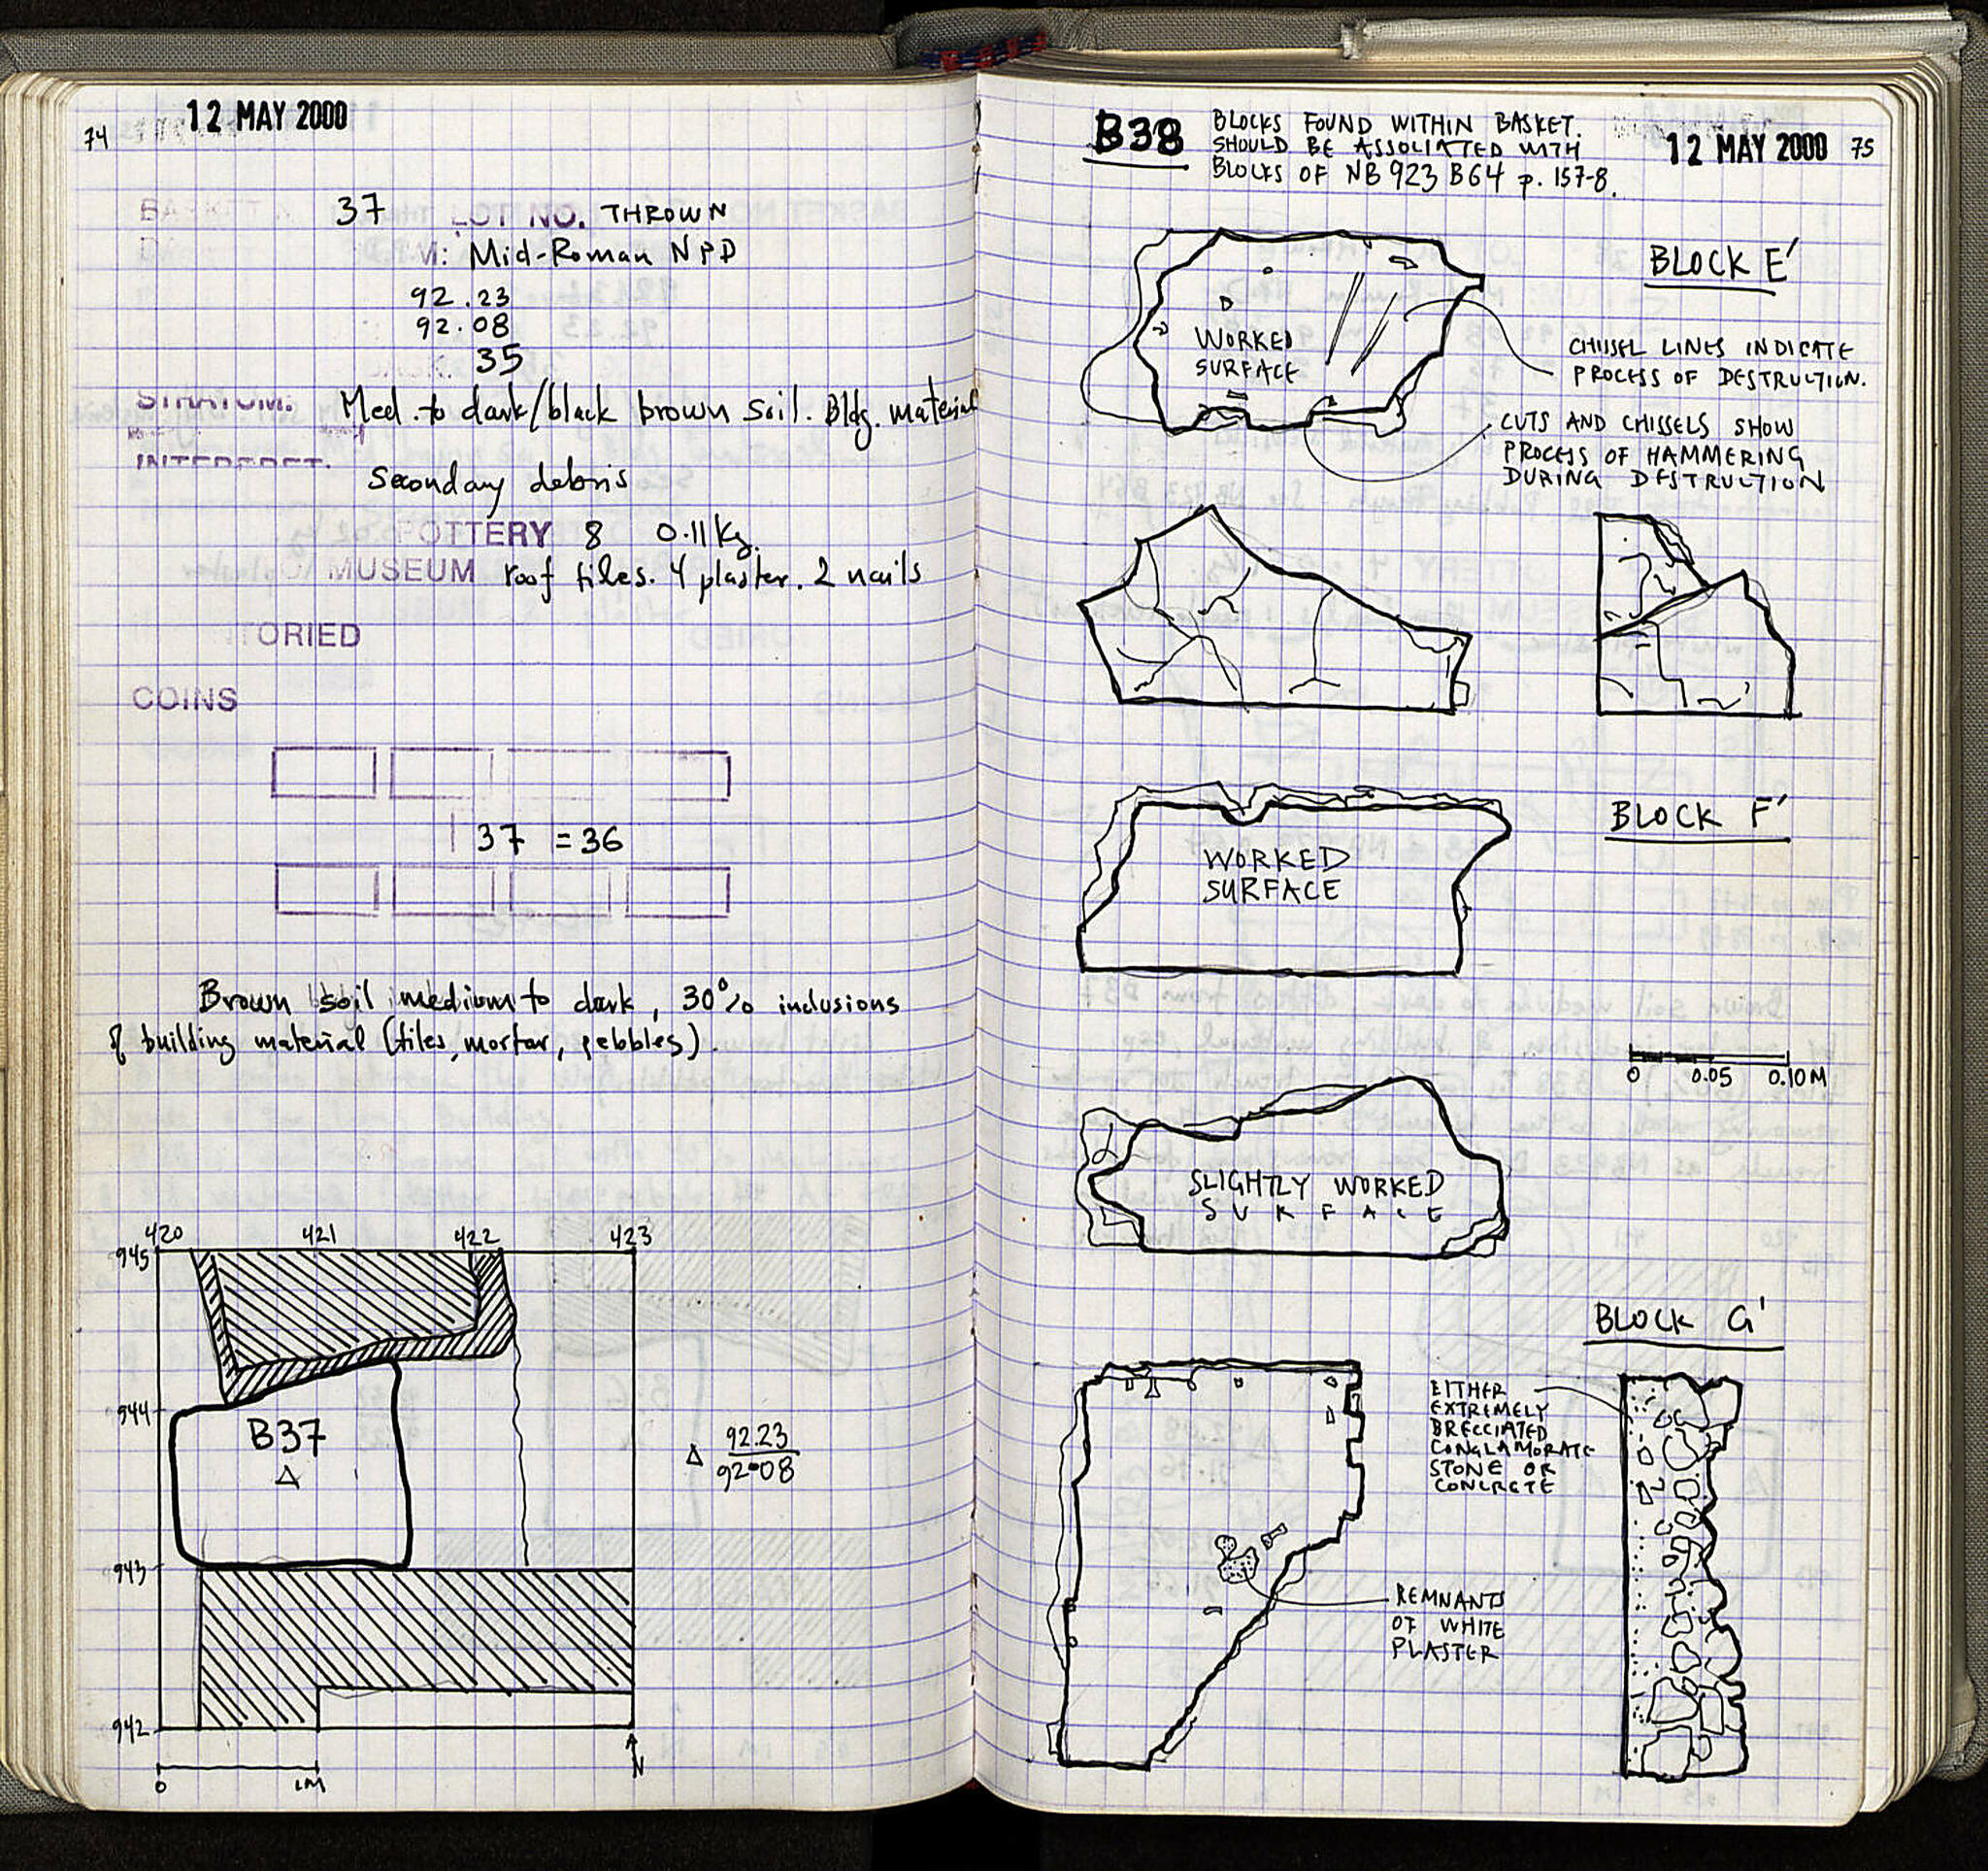 74
12 MAY 2000
37 LOT NO. THROWN
Mid-Roman NPD
92.23
92.08
35
STRATUM: Med. to dark/black brown soil. Bldg. material
INTERPRET.
Secondary debris
POTTERY 8 0.11 kg.
MUSEUM roof tiles. 4 plaster. 2 nails
TORIED
COINS
37 = 36
Brown soil medium to dark, 30% inclusions
of building material (tiles, mortar, pebbles).
420 421 422 423
945
944
B37
Δ
Δ 92.23
92.08
943
942
0 1M
N
B38
BLOCKS FOUND WITHIN BASKET.
SHOULD BE ASSOCIATED WITH
BLOCKS OF NB 923 B64 p. 157-8.
12 MAY 2000 75
BLOCK E'
WORKED
SURFACE
CHISSEL LINES INDICATE
PROCESS OF DESTRUCTION.
CUTS AND CHISSELS SHOW
PROCESS OF HAMMERING
DURING DESTRUCTION
BLOCK F'
WORKED
SURFACE
0 0.05 0.10M
SLIGHTLY WORKED
SURFACE
BLOCK G'
EITHER
EXTREMELY
BRECCIATED
CONGLAMORATE
STONE OR
CONCRETE
REMNANTS
OF WHITE
PLASTER